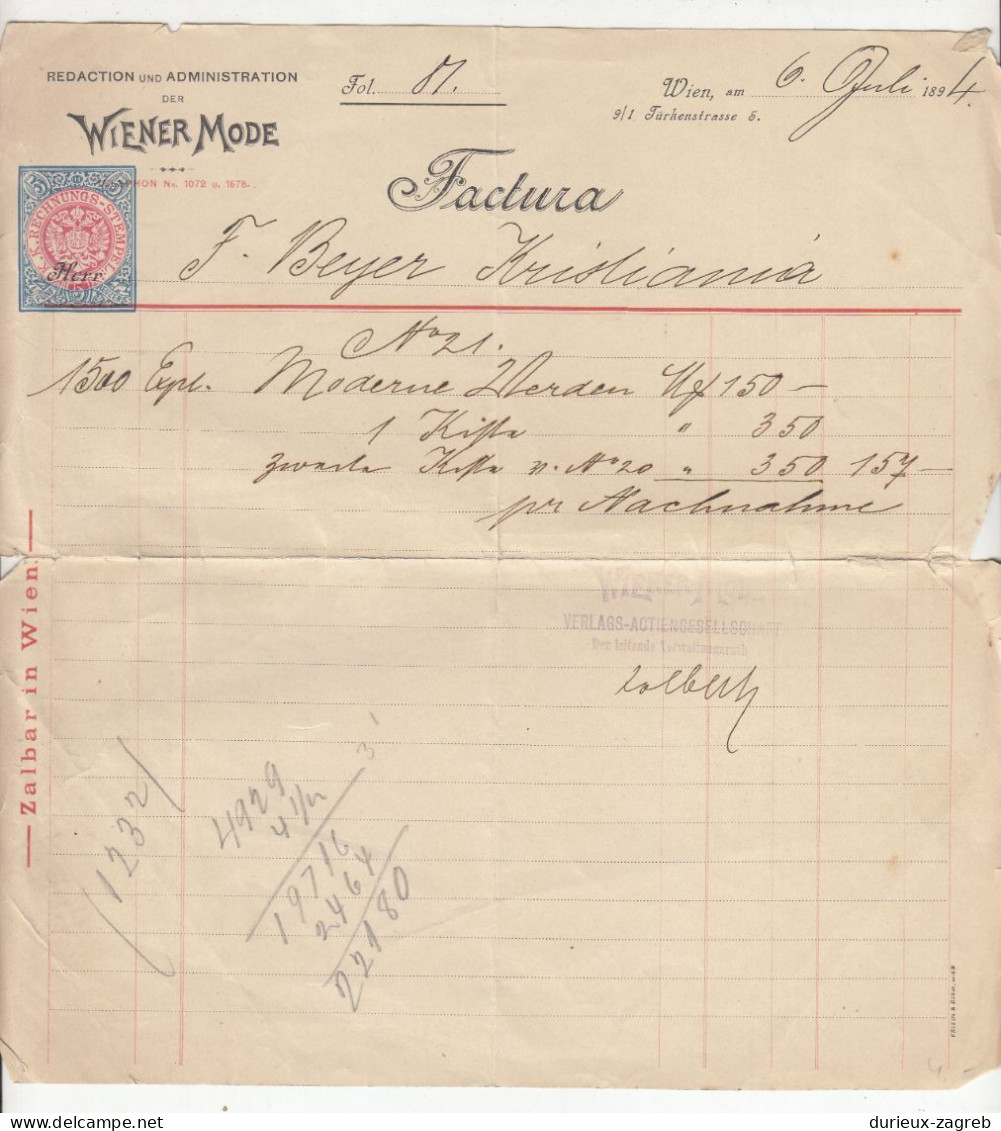 REDACTION UND ADMINISTRATION
DER
WIENER MODE
TELEPHON No. 1072 u. 1678.
Fol. 81.
Wien, am 6. Juli 1894.
9/1 Türkenstrasse 5.
Factura
5 5
K. K. RECHNUNGS-STEMPEL
Herr F. Beyer Kristiania
No 21.
1500 Expl. Moderne Werden 150 —
1 Kiste " 350
zweite Kiste v. No 20 " 350 157 —
pr Nachnahme
WIENER MODE
VERLAGS-ACTIENGESELLSCHAFT
Der leitende Verwaltungsrath
Zalbar in Wien.
1232
4929
4 1/2
19716
2464
22180
durieux-zagreb